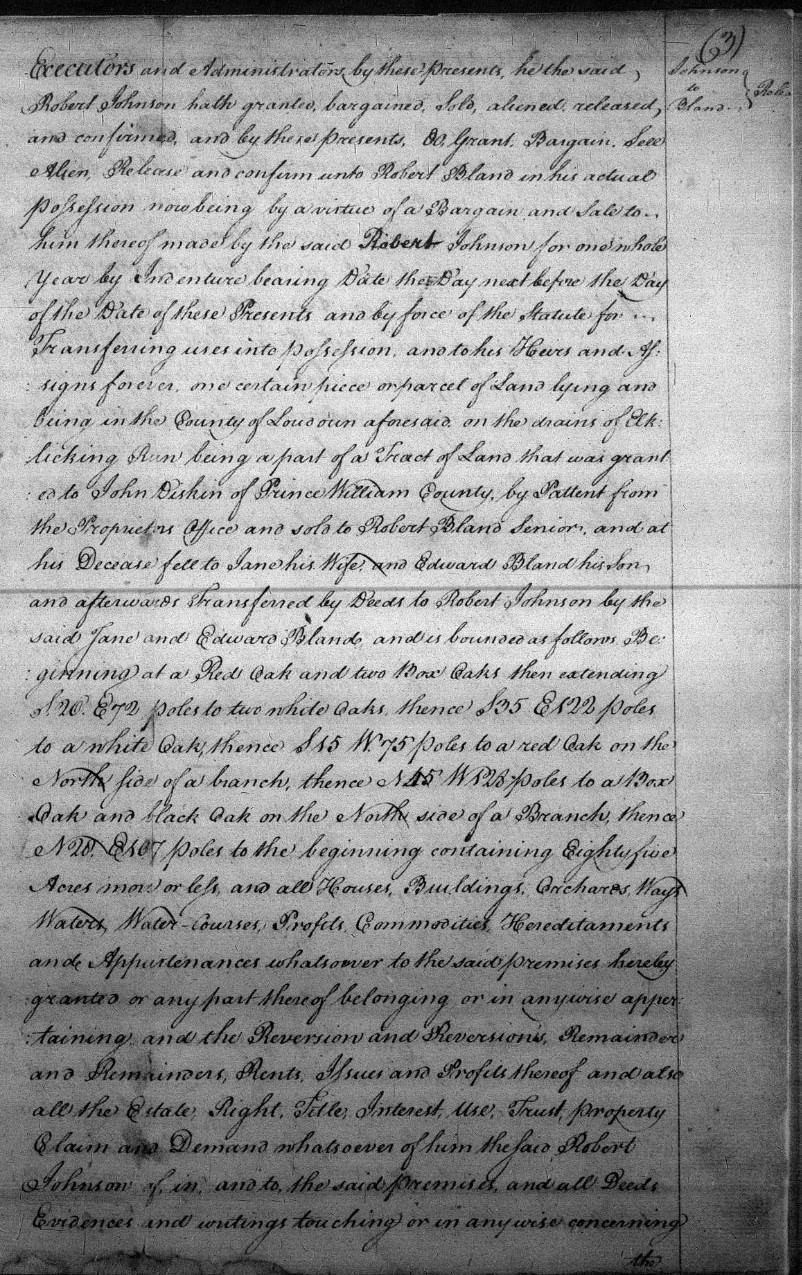 (3)
Johnson
to
Bland
Executors and Administrators by these presents, he the said,
Robert Johnson hath granted, bargained, Sold, aliened, released,
and confirmed, and by these presents, do, Grant, Bargain, Sell
Alien, Release and confirm unto Robert Bland in his actual
possession now being by a virtue of a Bargain and Sale to ..
him thereof made by the said Robert Johnson for one whole
Year by Indenture bearing Date the Day next before the Day
of the Date of these Presents and by force of the Statute for ...
Transferring uses into possession, and to his Heirs and As:
:signs forever, one certain piece or parcel of Land lying and
being in the County of Loudoun aforesaid on the drains of Elk:
licking Run being a part of a Tract of Land that was grant
:ed to John Diskin of Prince William County, by Pattent from
the Proprietors Office and sold to Robert Bland Senior, and at
his Decease fell to Jane his Wife, and Edward Bland his Son,
and afterwards Transferred by Deeds to Robert Johnson by the
said Jane and Edward Bland, and is bounded as follows Be:
:ginning at a Red Oak and two Box Oaks then extending
S. 20. E 72 poles to two white Oaks, thence S 35 E 122 poles
to a white Oak, thence S 15 W. 75 poles to a red Oak on the
North side of a branch, thence N 45 W 128 poles to a Box
Oak and black Oak on the North side of a Branch, thence
N 20. E 107 poles to the beginning containing Eighty five
Acres more or less, and all Houses, Buildings, Orchards, Ways
Waters, Water-Courses, Profits, Commodities, Hereditaments
and Appurtenances whatsoever to the said premises hereby
granted or any part thereof belonging or in anywise apper:
:taining and the Reversion and Reversions, Remainder
and Remainders, Rents, Issues and Profits thereof and also
all the Estate, Right, Title, Interest, Use, Trust, property
Claim and Demand whatsoever of him the said Robert
Johnson of, in, and to, the said premises, and all Deeds
Evidences and writings touching or in any wise concerning
the